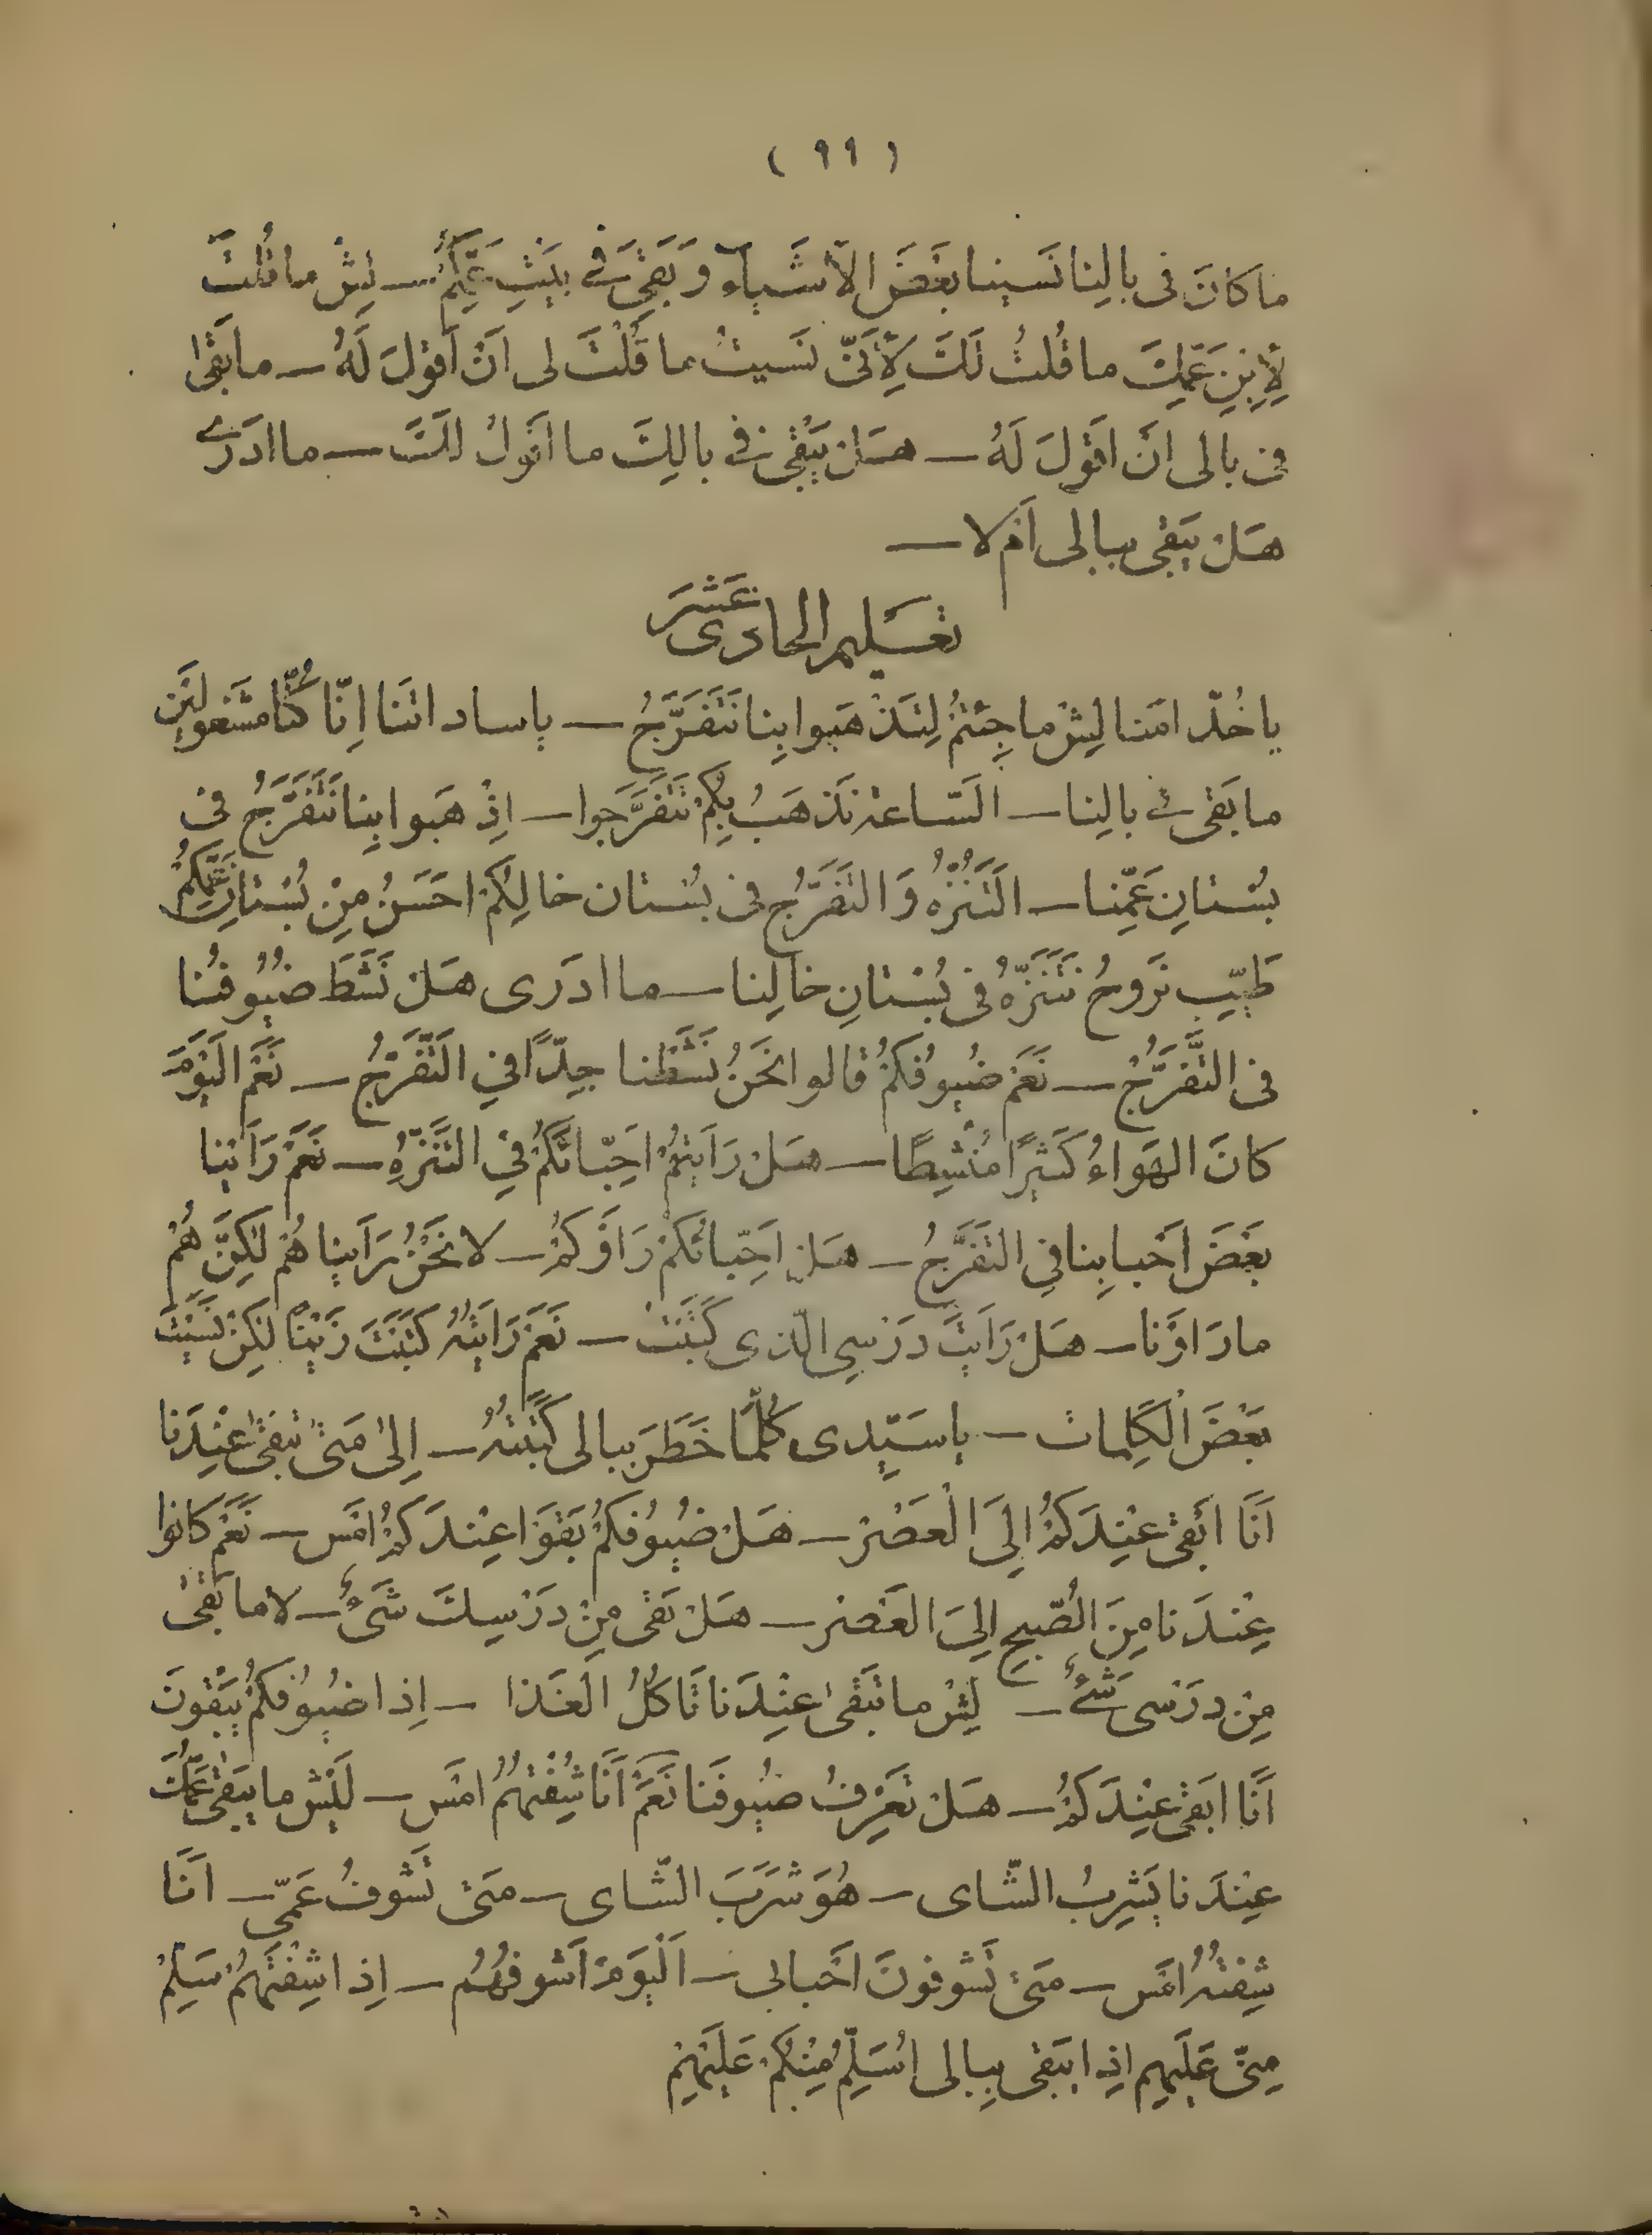 ( ۹۹ )
ما كانَ فى بالِنا نَسينا بَعْضَ الاَشياء وَبَقِىَ فى بَيْتِ عَمِّكُمْ — لِيْشْ ما قُلْتَ
لِاِبْنِ عَمِّكَ ما قُلْتُ لَكَ لِاَنّى نَسيتُ ما قُلْتَ لى اَنْ اَقولَ لَهُ — ما بَقى
فى بالى اَنْ اَقولَ لَهُ — هَلْ يَبْقى فى بالِكَ ما اَقولُ لَكَ — ما ادَرى
هَلْ يَبْقى ببالى اَمْ لا —
تعْليم الحادى عَشَرَ
يا خُدّامَنا لِيْشْ ما جِئْتُمْ لِتَذْهَبوا بِنا نَتَفَرَّجُ — يا ساداتَنا اِنّا كُنّا مَشْغولينَ
ما بَقى فى بالِنا — السّاعة نَذهَبُ بِكُمْ تَتَفَرَّجوا — اِذْهَبوا بِنا نَتَفَرَّجُ فى
بُسْتانِ عَمِّنا — التَنَزُّهُ وَالتَفَرُّج فى بُسْتان خالِكُمْ احَسَنُ مِنْ بُسْتانِ عَمِّكُمْ
طَيّب نَروحُ نَتَنَزَّهُ فى بُسْتانِ خالِنا — ما ادَرى هَلْ نَشَطَ ضُيُوفُنا
فى التَّفَرُّجُ — نَعَمْ ضُيوُفكُمْ قالوا نحَنُ نَشَطْنا جِدّاً في التَّفَرُّجُ — نَعَمْ الَيَوْمَ
كانَ الهَواءُ كَثيرًا مُنْشِطًا — هَلْ رَاَيْتُمْ احَِبّائَكُمْ فيِ التَنَزُّهِ — نَعَمْ رَاَيْنا
بَعْضَ اَحْبابِنا فيِ التَفَرُّجُ — هَلْ اَحِبّائُكُمْ رَاَوْكُمْ — لا نَحْنُ رَاَيناهُمْ لكِنَّ هُمْ
ما رَاوْنا — هَلْ رَاَيْتَ دَرْسِى الّذى كَتَبْتُ — نَعَمْ رَاَيْتُهُ كَتَبْتَ زَيْنًا لكِنْ نَسَيْتَ
بَعْضَ الْكَلِماتْ — يا سَيّدى كُلّما خَطَرَ ببالى كَتَبْتُهُ — اِلى مَتى تَبْقى عِنْدَنا
اَنَا ابَْقى عِنْدَكُمْ اِلَى الْعَصْرْ — هَلْ ضُيوُفكُمْ بَقَوَا عِنْدَكُمْ امَْس — نَعَمْ كانوا
عِنْدَنا مِنَ الصُّبحِ اِلىَ العَصْرْ — هَلْ بَقى مِنْ دَرْسِكَ شَىْءٌ — لا ما بَقىْ
مِنْ دَرْسى شَىْءٌ — لِيْشْ ما تَبْقى عِنْدَنا تَاكُلُ الْغَذا — اِذا ضُيوُفكُمْ يَبْقونَ
اَنَا ابَْقى عِنْدَكُمْ — هَلْ تَعْرِفُ ضُيوفَنا نَعَمْ اَنَا شِفْتُهُمْ امَْس — لَيْش ما يَبْقى عَمُّكَ
عِنْدَنا يَشْرِبُ الشّاى — هُوَ شَرَبَ الشّاى — مَتى تَشْوفُ عَمّى — انََا
شِفْتُهُ امَْس — مَتى تَشْوفونَ احَْبابى — اَلْيَوَمْ اَشوفُهُمْ — اِذا شِفْتَهُمْ سَلِّمْ
مِنّى عَلَيهِم اِذا بَقى بِبالى اُسَلِّمُ مِنْكُمْ عَلَيْهِمْ